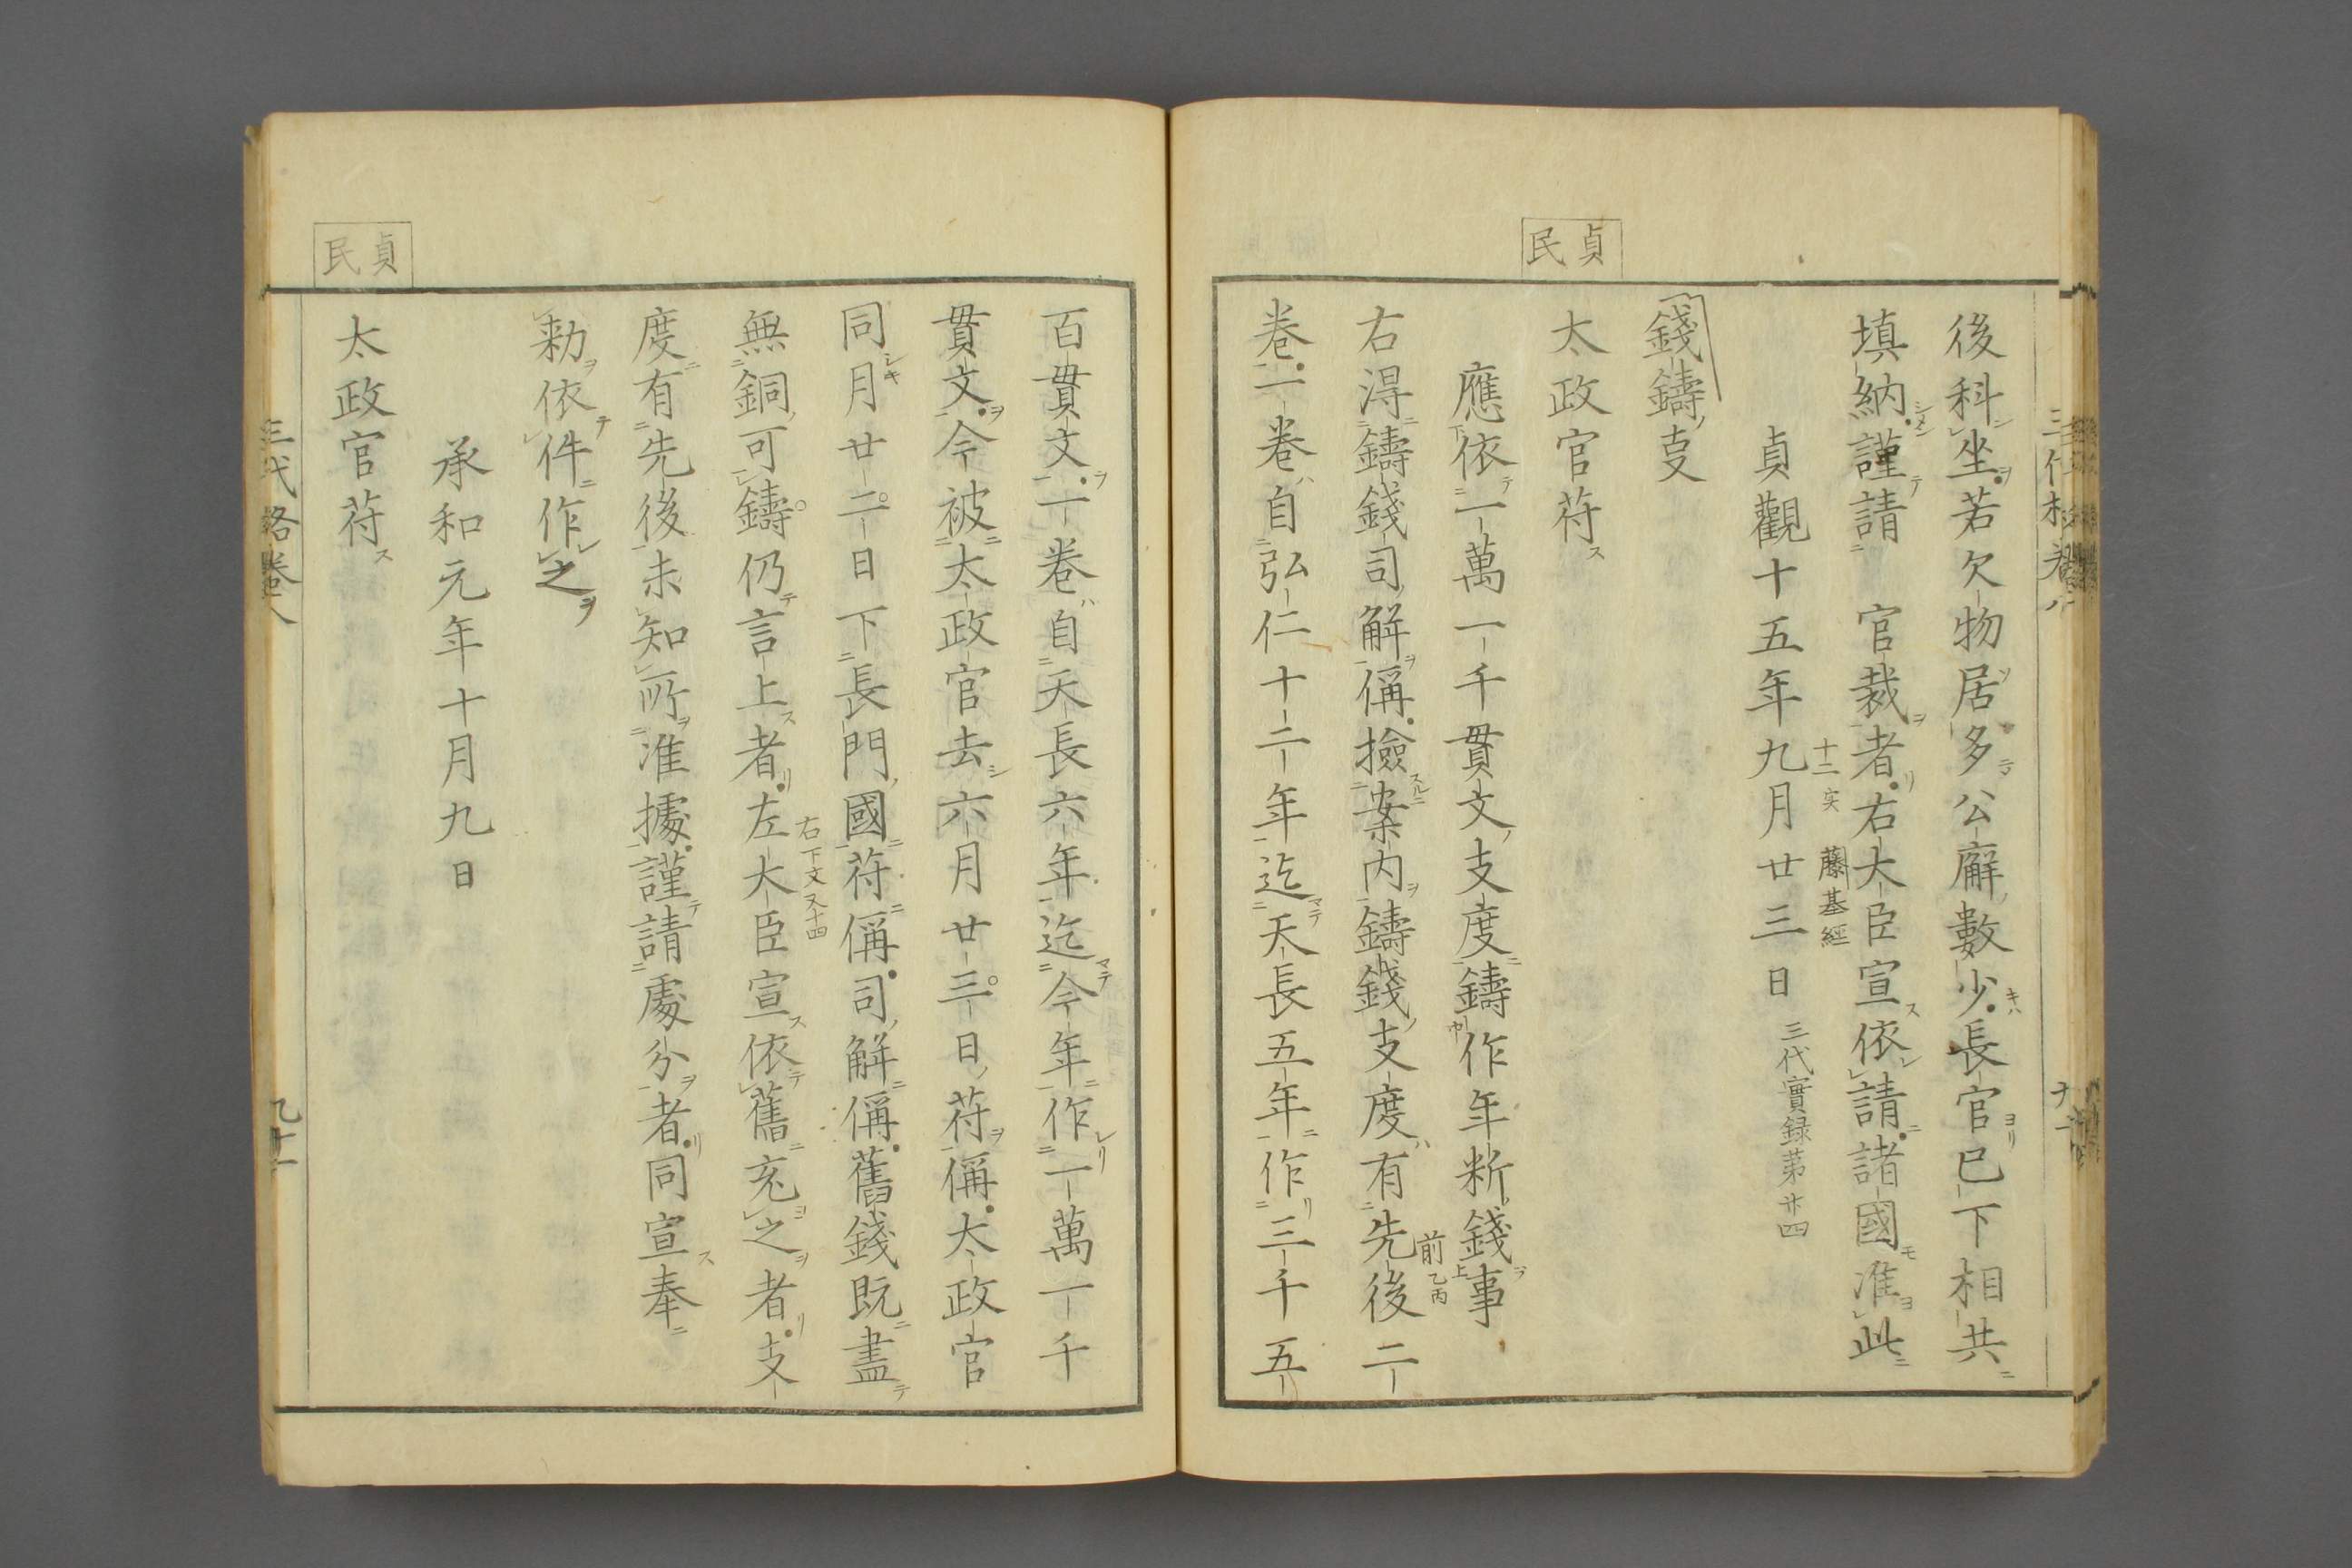 後科坐若欠物居多公廨數少長官已下相共
填納謹請　官裁者右大臣宣依請諸國准此
十二实　藤基經
貞觀十五年九月廿三日　三代實録第廿四
錢鑄叓
貞民
太政官苻
應依一萬一千貫文支度鑄作年断錢事
右得鑄錢司解偁撿案内鑄錢支度有先後二
前乙丙
卷一卷自弘仁十二年迄天長五年作三千五
百貫文一卷自天長六年迄今年作一萬一千
貫文今被太政官去六月廿三日苻偁太政官
同月廿二日下長門國苻偁司解偁舊錢既盡
無銅可鑄仍言上者左大臣宣依舊充之者支
右下文又十四
度有先後未知所准據謹請處分者同宣奉
勅依件作之
承和元年十月九日
貞民
太政官苻
三代格卷八　九十一